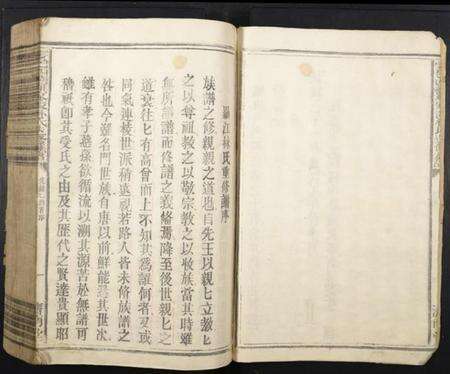 羅江林氏重修譜序
族譜之修親親之道也自先王以親匕立教匕
之以尊祖教之以敬宗教之以收族當其時雖
無所謂譜而修譜之義備焉降至後世親匕之
道衰往匕有高曾而上不知其為誰何者又或
同氣連枝世派稍遠視若路人皆未脩族譜之
咎也今觀名門世族自唐以前鮮能言其世次
雖有孝子慈孫欲循流以溯其源苦於無譜可
稽祇即其受氏之由及其歷代之賢達貴顯昭